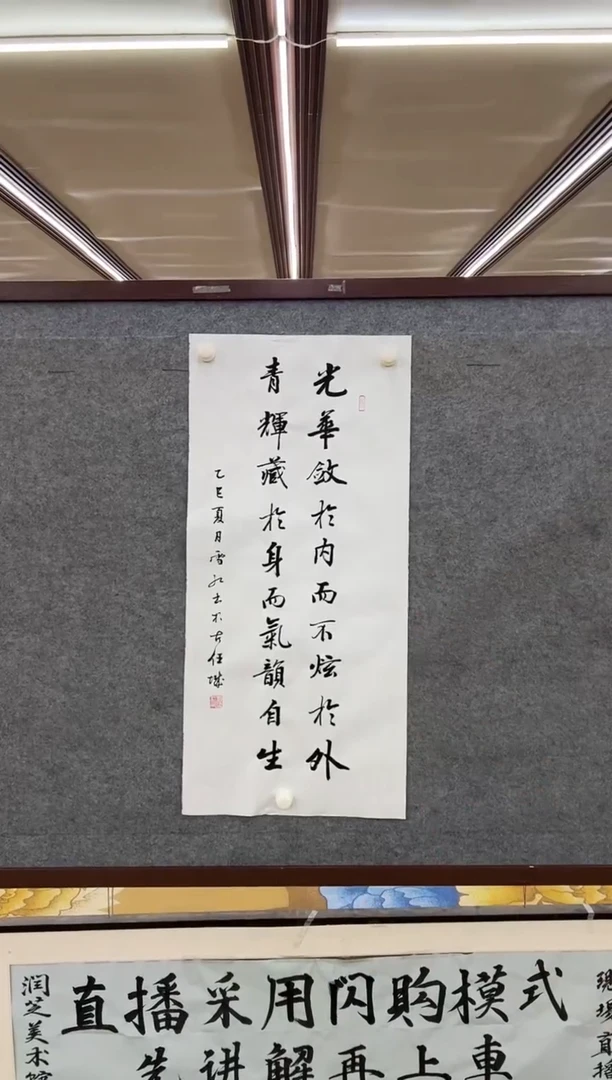 光華斂於内而不炫於外
青輝藏於身而氣韻自生
乙巳夏月雪
任城
直播采用闪购模式
先讲解再上車
润芝美术馆
現場直播